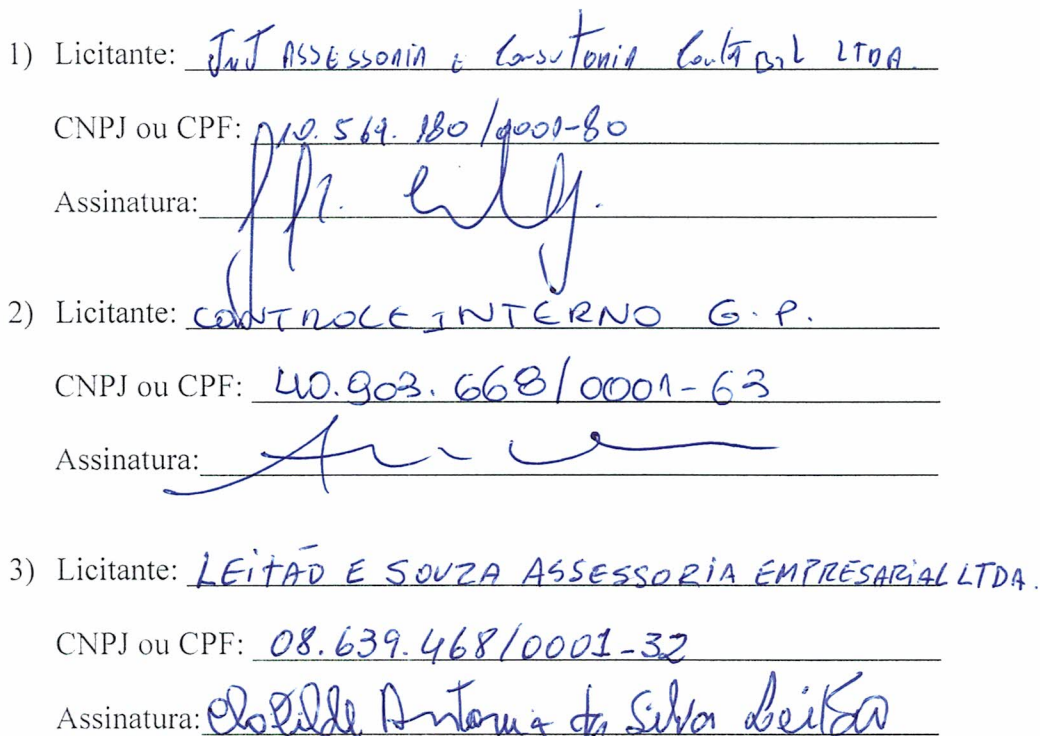 1) Licitante: JNJ ASSESSORIA E Consultoria Contábil LTDA.
CNPJ ou CPF: 10.569.180/0001-80
Assinatura:
2) Licitante: CONTROLE INTERNO G.P.
CNPJ ou CPF: 40.903.668/0001-63
Assinatura:
3) Licitante: LEITÃO E SOUZA ASSESSORIA EMPRESARIAL LTDA.
CNPJ ou CPF: 08.639.468/0001-32
Assinatura: Clotilde Antonia da Silva Leitão